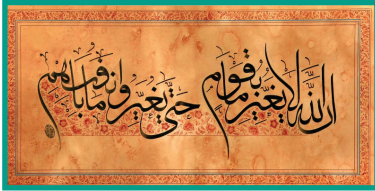 ان الله لا يغير ما بقوم حتى يغيروا ما بأنفسهم